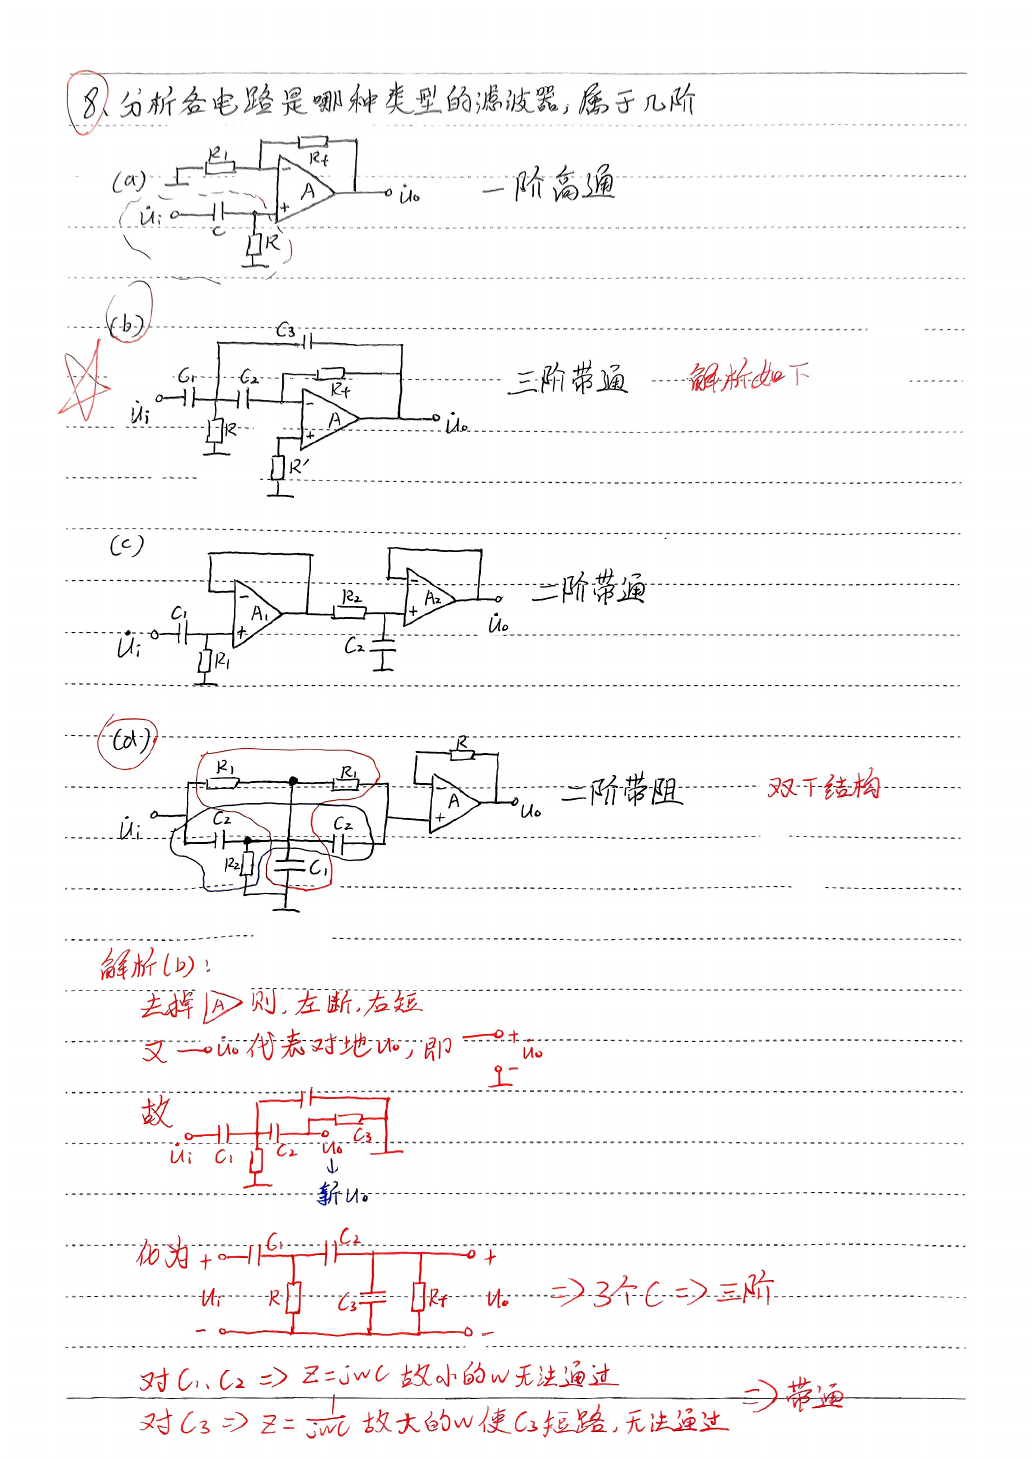 8、分析各电路是哪种类型的滤波器，属于几阶
(a)
R1
Rf
A
U̇i
C
R
U̇o
一阶高通
(b)
C3
C1
C2
Rf
U̇i
R
A
R′
U̇o
三阶带通
解析如下
(c)
C1
U̇i
R1
A1
R2
C2
A2
U̇o
二阶带通
(d)
R1
R1
R
U̇i
C2
C2
R2
C1
A
U̇o
二阶带阻
双T结构
解析(b)：
去掉 A 则，左断，右短
又 —o u̇o 代表对地uo，即 + u̇o -
故
U̇i
C1
C2
U̇o
C3
↓
新Uo
化为
+
C1
C2
+
Ui
R
C3
Rf
Uo
-
-
=> 3个C => 三阶
对C1、C2 => Z=jwC 故小的w无法通过
对C3 => Z=1/jwC 故大的w使C3短路，无法通过
=> 带通